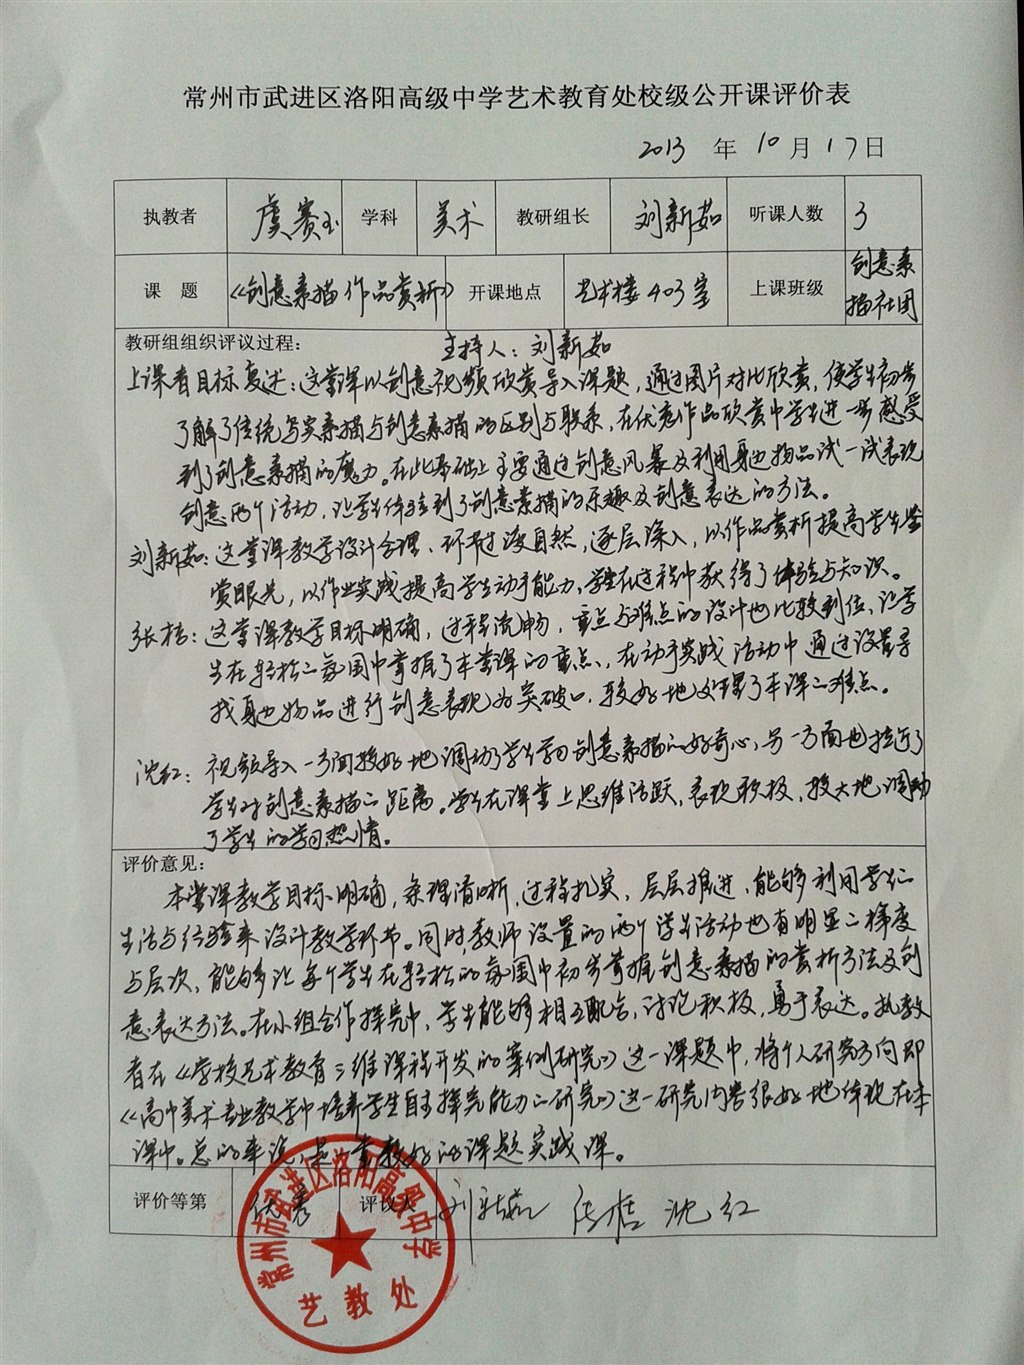 常州市武进区洛阳高级中学艺术教育处校级公开课评价表
2013 年 10 月 17日
执教者 虞赛玉 学科 美术 教研组长 刘新茹 听课人数 3
课 题 《创意素描作品赏析》 开课地点 艺术楼403室 上课班级 创意素
描社团
教研组组织评议过程： 主持人：刘新茹
上课者目标复述：这堂课以创意视频欣赏导入课题，通过图片对比欣赏，使学生初步
了解了传统写实素描与创意素描的区别与联系，在优秀作品欣赏中学生进一步感受
到了创意素描的魔力。在此基础上主要通过创意风暴及利用身边物品试一试表现
创意两个活动，让学生体验到了创意素描的乐趣及创意表达的方法。
刘新茹：这堂课教学设计合理、环节过渡自然，逐层深入，以作品赏析提高学生鉴
赏眼光，以作业实践提高学生动手能力，学生在过程中获得了体验与知识。
张桔：这堂课教学目标明确，过程流畅，重点与难点的设计也比较到位，让学
生在轻松的氛围中掌握了本堂课的重点，在动手实践活动中通过设置寻
找身边物品进行创意表现为突破口，较好地处理了本课的难点。
沈红：视频导入一方面较好地调动了学生学习创意素描的好奇心，另一方面也拉近了
学生对创意素描的距离。学生在课堂上思维活跃，表现积极，较大地调动
了学生的学习热情。
评价意见：
本堂课教学目标明确，条理清晰，过程扎实，层层推进，能够利用学生的
生活与经验来设计教学环节。同时教师设置的两个学生活动也有明显的梯度
与层次，能够让每个学生在轻松的氛围中初步掌握创意素描的赏析方法及创
意表达方法。在小组合作探究中，学生能够相互配合，讨论积极，勇于表达。执教
者在《学校艺术教育三维课程开发的案例研究》这一课题中，将个人研究方向即
《高中美术专业教学中培养学生自主探究能力的研究》这一研究内容很好地体现在本
课中。总的来说，是一堂较好的课题实践课。
评价等第 优秀 评议人 刘新茹 张桔 沈红
常州市武进区洛阳高级中学
艺教处